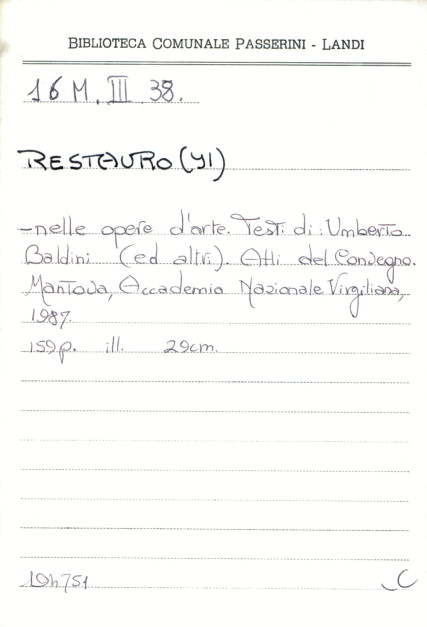 BIBLIOTECA COMUNALE PASSERINI - LANDI
16 M. III 38.
RESTAURO (Il)
-nelle opere d'arte. Testi di: Umberto
Baldini (ed altri). Atti del Convegno.
Mantova, Accademia Nazionale Virgiliana,
1987.
159p. ill. 29cm.
C